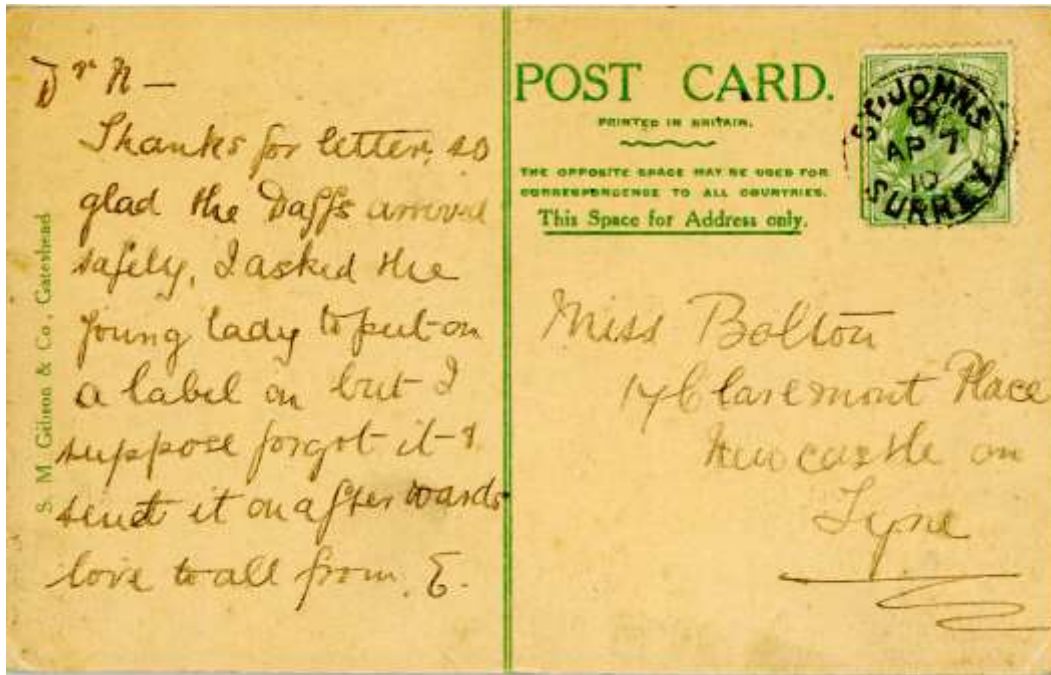 Dr N —
Thanks for letter, so
glad the Daffs arrived
safely, I asked the
young lady to put on
a label on but I
suppose forgot it &
sent it on afterwards
love to all from E.
S. M. Gibson & Co, Gateshead
POST CARD.
PRINTED IN BRITAIN.
THE OPPOSITE SPACE MAY BE USED FOR
CORRESPONDENCE TO ALL COUNTRIES.
This Space for Address only.
ST. JOHNS
AP 7
10
SURREY
Miss Bolton
17 Claremont Place
Newcastle on
Tyne